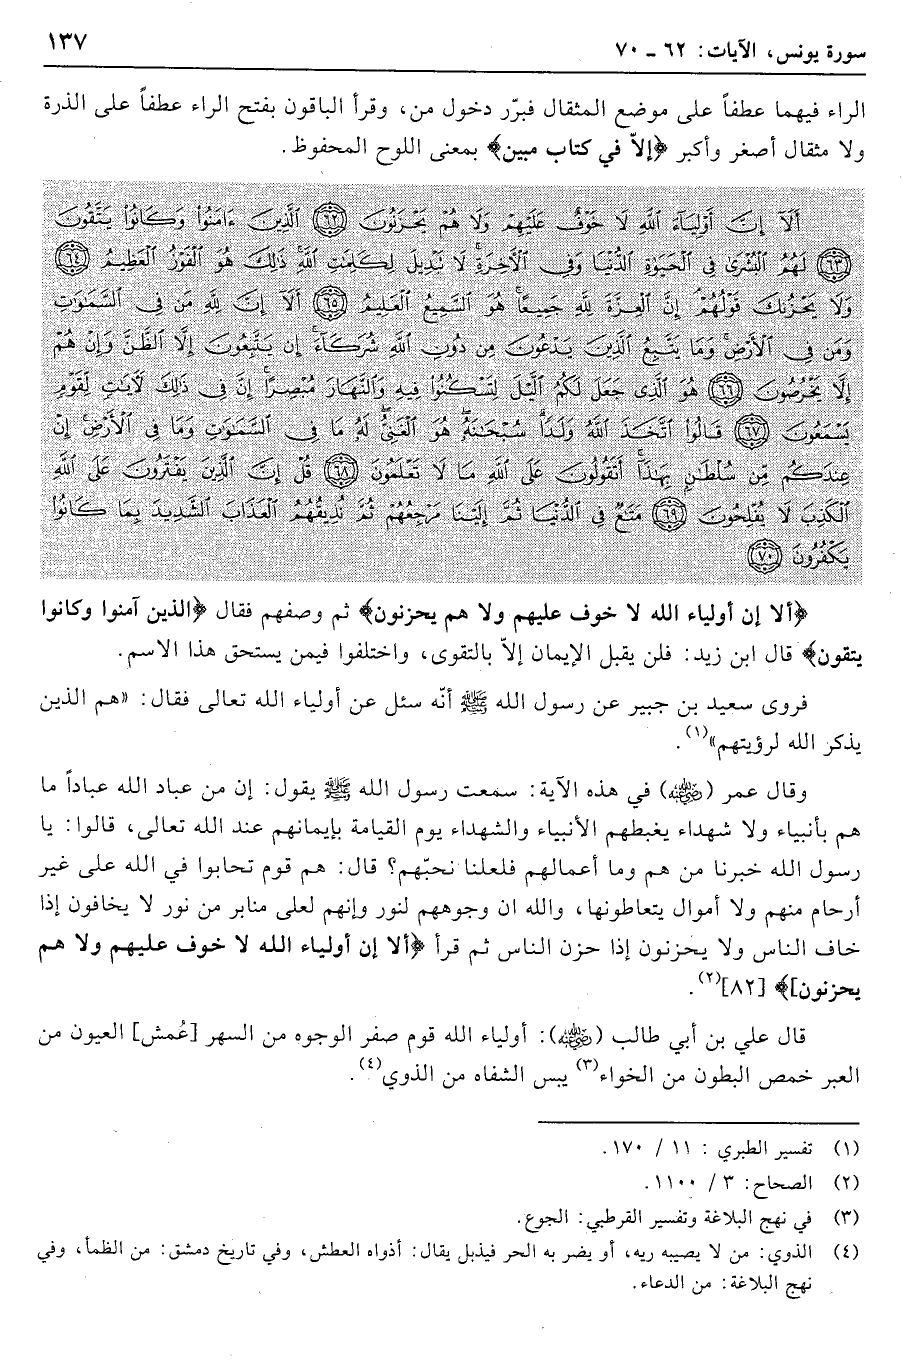 سورة يونس، الآيات: ٦٢ ـ ٧٠
١٣٧
الراء فيهما عطفاً على موضع المثقال فبرّر دخول من، وقرأ الباقون بفتح الراء عطفاً على الذرة
ولا مثقال أصغر وأكبر ﴿إلاّ في كتاب مبين﴾ بمعنى اللوح المحفوظ.
أَلَآ إِنَّ أَوْلِيَآءَ ٱللَّهِ لَا خَوْفٌ عَلَيْهِمْ وَلَا هُمْ يَحْزَنُونَ ﴿٦٢﴾ ٱلَّذِينَ ءَامَنُوا۟ وَكَانُوا۟ يَتَّقُونَ
﴿٦٣﴾ لَهُمُ ٱلْبُشْرَىٰ فِى ٱلْحَيَوٰةِ ٱلدُّنْيَا وَفِى ٱلْأَخِرَةِ لَا نَبْدِيلَ لِكَلِمَٰتِ ٱللَّهِ ذَٰلِكَ هُوَ ٱلْفَوْزُ ٱلْعَظِيمُ ﴿٦٤﴾
وَلَا يَحْزُنكَ قَوْلُهُمْ إِنَّ ٱلْعِزَّةَ لِلَّهِ جَمِيعًا هُوَ ٱلسَّمِيعُ ٱلْعَلِيمُ ﴿٦٥﴾ أَلَآ إِنَّ لِلَّهِ مَن فِى ٱلسَّمَٰوَٰتِ
وَمَن فِى ٱلْأَرْضِ وَمَا يَتَّبِعُ ٱلَّذِينَ يَدْعُونَ مِن دُونِ ٱللَّهِ شُرَكَآءَ إِن يَتَّبِعُونَ إِلَّا ٱلظَّنَّ وَإِنْ هُمْ
إِلَّا يَخْرُصُونَ ﴿٦٦﴾ هُوَ ٱلَّذِى جَعَلَ لَكُمُ ٱلَّيْلَ لِتَسْكُنُوا۟ فِيهِ وَٱلنَّهَارَ مُبْصِرًا إِنَّ فِى ذَٰلِكَ لَأَيَٰتٍ لِّقَوْمٍ
يَسْمَعُونَ ﴿٦٧﴾ قَالُوا۟ ٱتَّخَذَ ٱللَّهُ وَلَدًا سُبْحَٰنَهُۥ هُوَ ٱلْغَنِىُّ لَهُۥ مَا فِى ٱلسَّمَٰوَٰتِ وَمَا فِى ٱلْأَرْضِ إِنْ
عِندَكُم مِّن سُلْطَٰنٍۭ بِهَٰذَآ أَتَقُولُونَ عَلَى ٱللَّهِ مَا لَا تَعْلَمُونَ ﴿٦٨﴾ قُلْ إِنَّ ٱلَّذِينَ يَفْتَرُونَ عَلَى ٱللَّهِ
ٱلْكَذِبَ لَا يُفْلِحُونَ ﴿٦٩﴾ مَتَٰعٌ فِى ٱلدُّنْيَا ثُمَّ إِلَيْنَا مَرْجِعُهُمْ ثُمَّ نُذِيقُهُمُ ٱلْعَذَابَ ٱلشَّدِيدَ بِمَا كَانُوا۟
يَكْفُرُونَ ﴿٧٠﴾
﴿ألا إن أولياء الله لا خوف عليهم ولا هم يحزنون﴾ ثم وصفهم فقال ﴿الذين آمنوا وكانوا
يتقون﴾ قال ابن زيد: فلن يقبل الإيمان إلاّ بالتقوى، واختلفوا فيمن يستحق هذا الاسم.
فروى سعيد بن جبير عن رسول الله ﷺ أنّه سئل عن أولياء الله تعالى فقال: «هم الذين
يذكر الله لرؤيتهم»(١).
وقال عمر (رضي الله عنه) في هذه الآية: سمعت رسول الله ﷺ يقول: إن من عباد الله عباداً ما
هم بأنبياء ولا شهداء يغبطهم الأنبياء والشهداء يوم القيامة بإيمانهم عند الله تعالى، قالوا: يا
رسول الله خبرنا من هم وما أعمالهم فلعلنا نحبّهم؟ قال: هم قوم تحابوا في الله على غير
أرحام منهم ولا أموال يتعاطونها، والله ان وجوههم لنور وإنهم لعلى منابر من نور لا يخافون إذا
خاف الناس ولا يحزنون إذا حزن الناس ثم قرأ ﴿ألا إن أولياء الله لا خوف عليهم ولا هم
يحزنون]﴾ [٨٢](٢).
قال علي بن أبي طالب (رضي الله عنه): أولياء الله قوم صفر الوجوه من السهر [عُمش] العيون من
العبر خمص البطون من الخواء(٣) يبس الشفاه من الذوي(٤).
(١) تفسير الطبري : ١١ / ١٧٠.
(٢) الصحاح: ٣ / ١١٠٠.
(٣) في نهج البلاغة وتفسير القرطبي: الجوع.
(٤) الذوي: من لا يصيبه ريه، أو يضر به الحر فيذبل يقال: أذواه العطش، وفي تاريخ دمشق: من الظمأ، وفي
نهج البلاغة: من الدعاء.